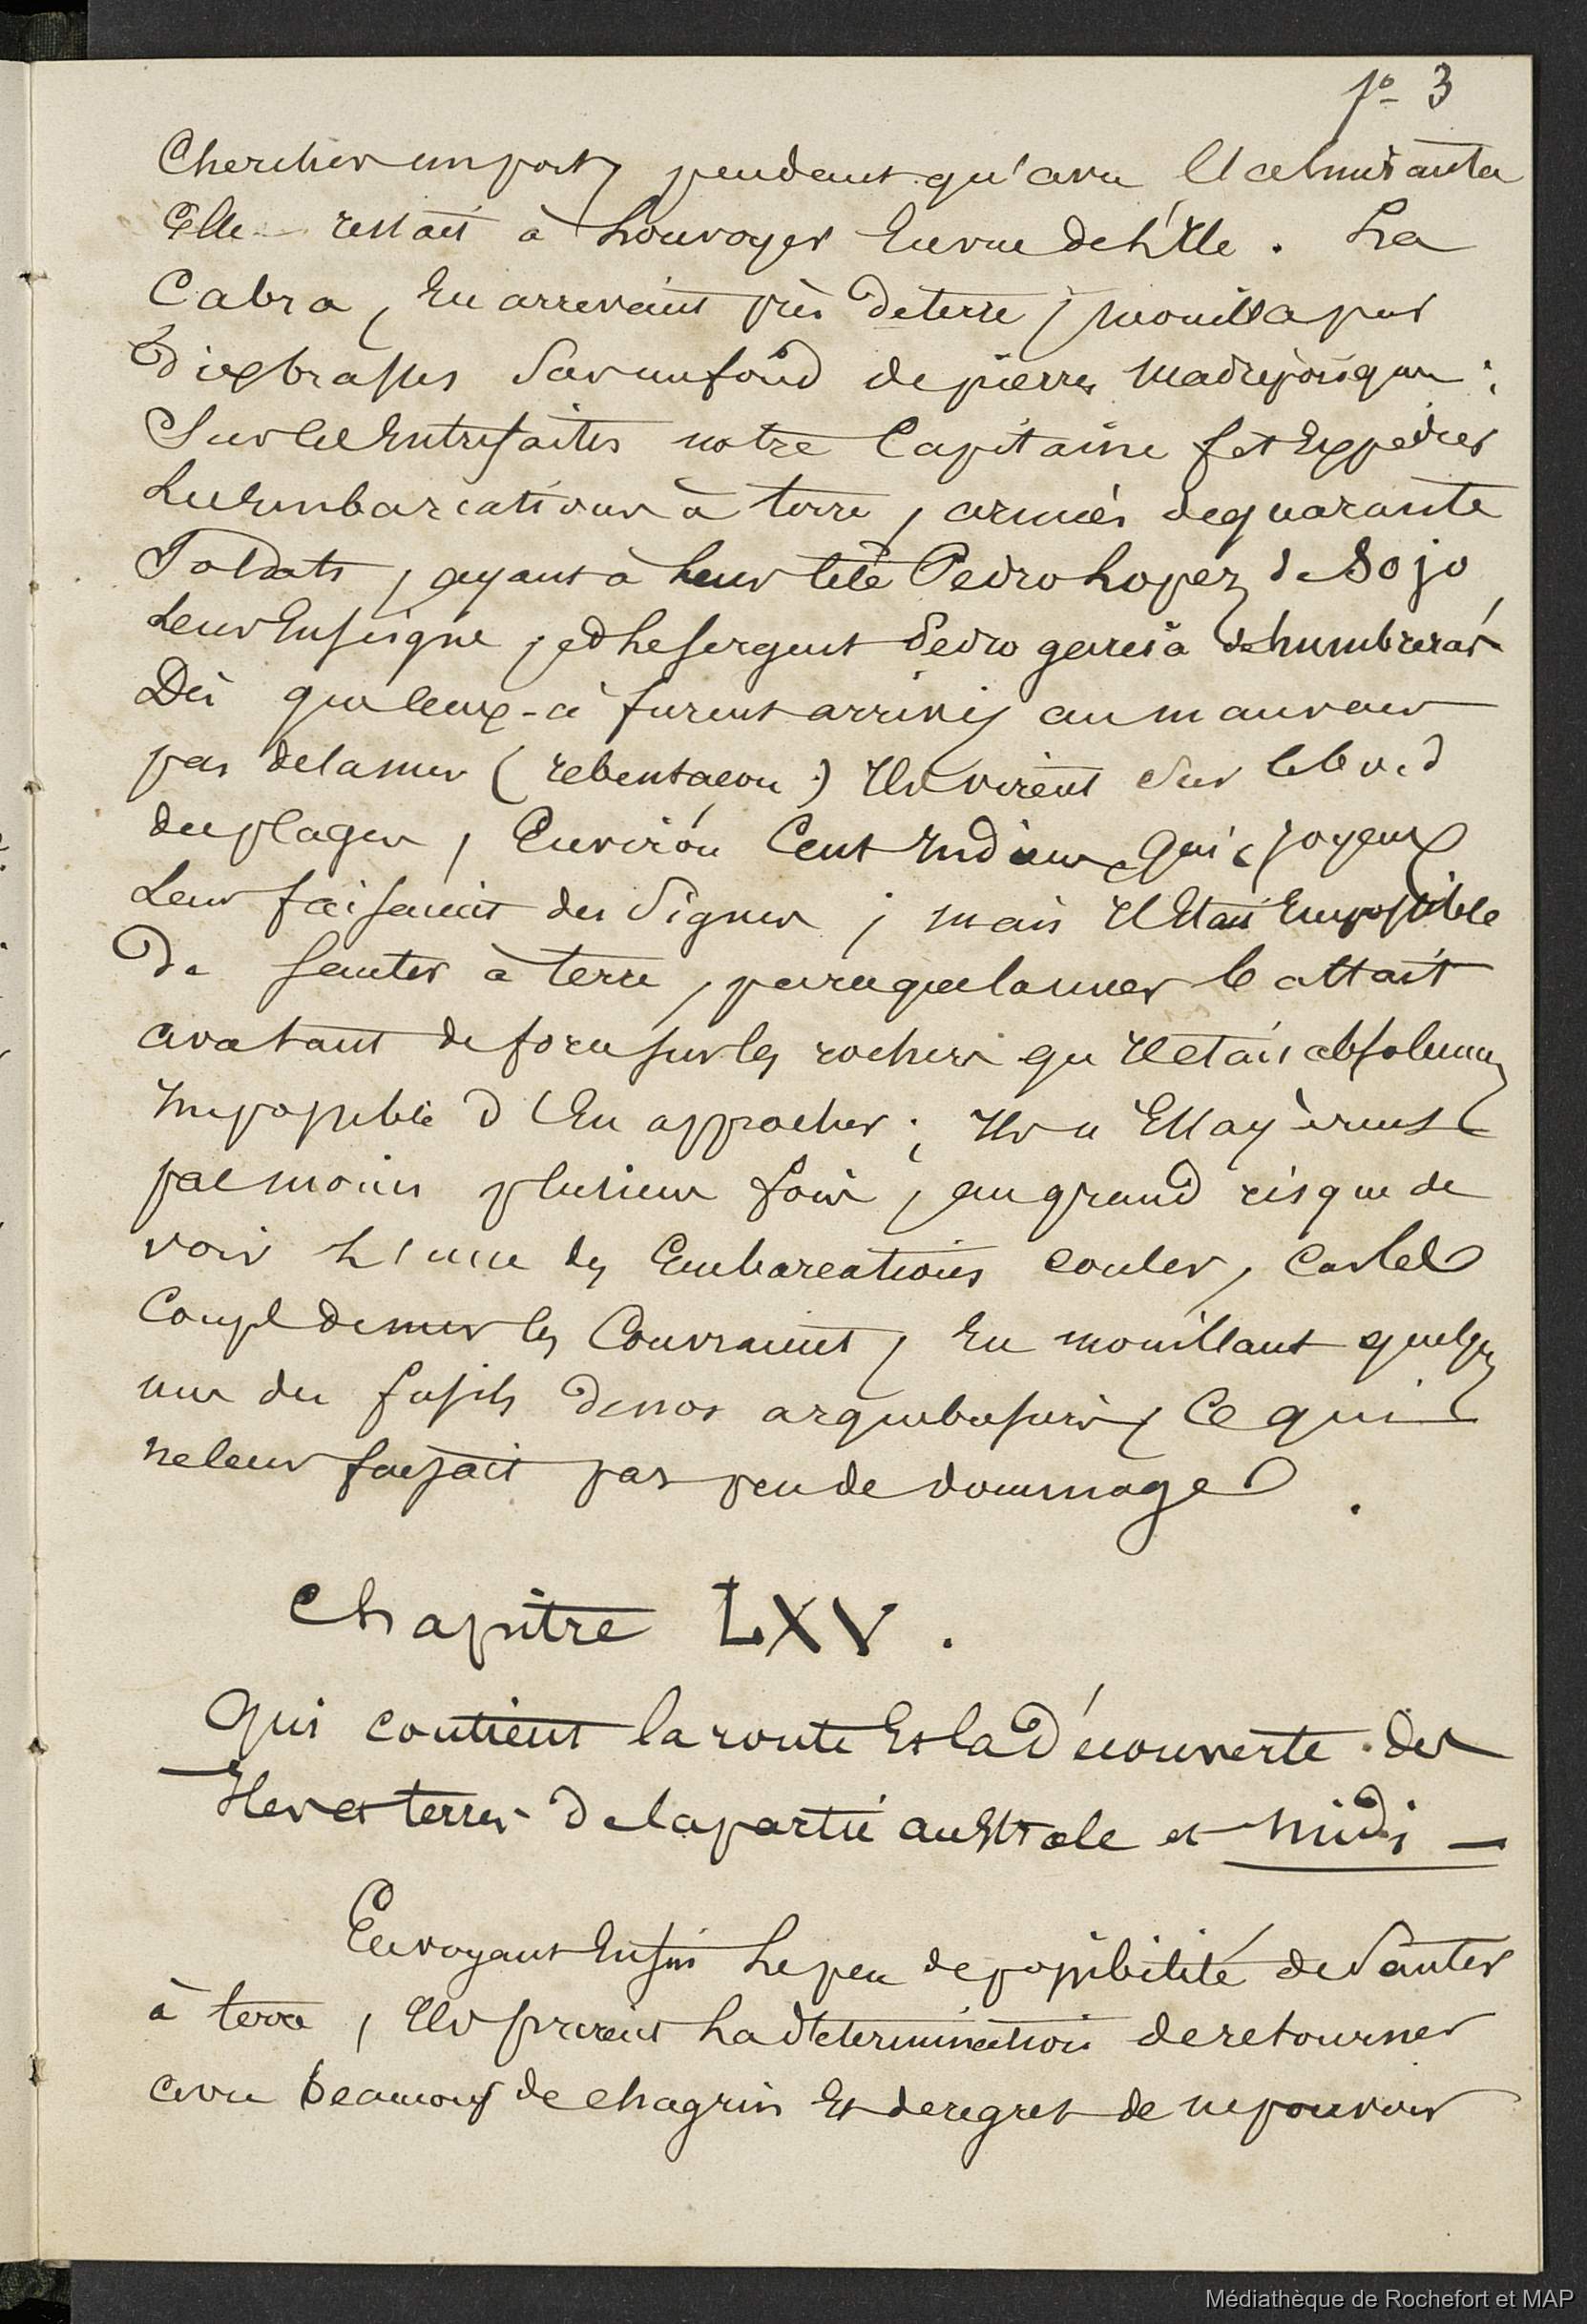 po 3
Chercher un port, pendant qu'avec l'almiranta
Elle restait à Louvoyer En vue de L'Ile. La
Cabra, En arrivant près de terre, mouilla par
dix brasses Sur un fond de pierres madréporiques;
Sur ces Entrefaites notre Capitaine fit Expédier
Les Embarcations à terre, armées de quarante
Soldats, ayant à leur tête Pedro Lopez de Sojo,
Leur Enseigne, et Le sergent Pedro garcia de Lumbreras
Dès que ceux-ci furent arrivés au mauvais
pas de la mer (rebentaçon.) Ils virent Sur le bord
des plages, Environ Cent Indiens, qui, joyeux
Leur faisaient des Signes; mais Il Etait Impossible
De sauter à terre, parce que la mer battait
avec tant de force sur les rochers qu'Il était absolument
Impossible d'En approcher; Ils n'Essayèrent
pas moins plusieurs fois, au grand risque de
voir L'une des Embarcations couler, car les
Coups de mer les Couvraient, En mouillant quelques
uns des fusils de nos arquebusiers, Ce qui
ne leur faisait pas peu de dommage.
Chapitre LXV.
Qui contient la route Et la Découverte des
Iles et terres de la partie australe et midi —
En voyant Enfin Le peu de possibilité de Sauter
à terre, Ils prirent La détermination de retourner
avec beaucoup de chagrin Et de regret de ne pouvoir
Médiathèque de Rochefort et MAP